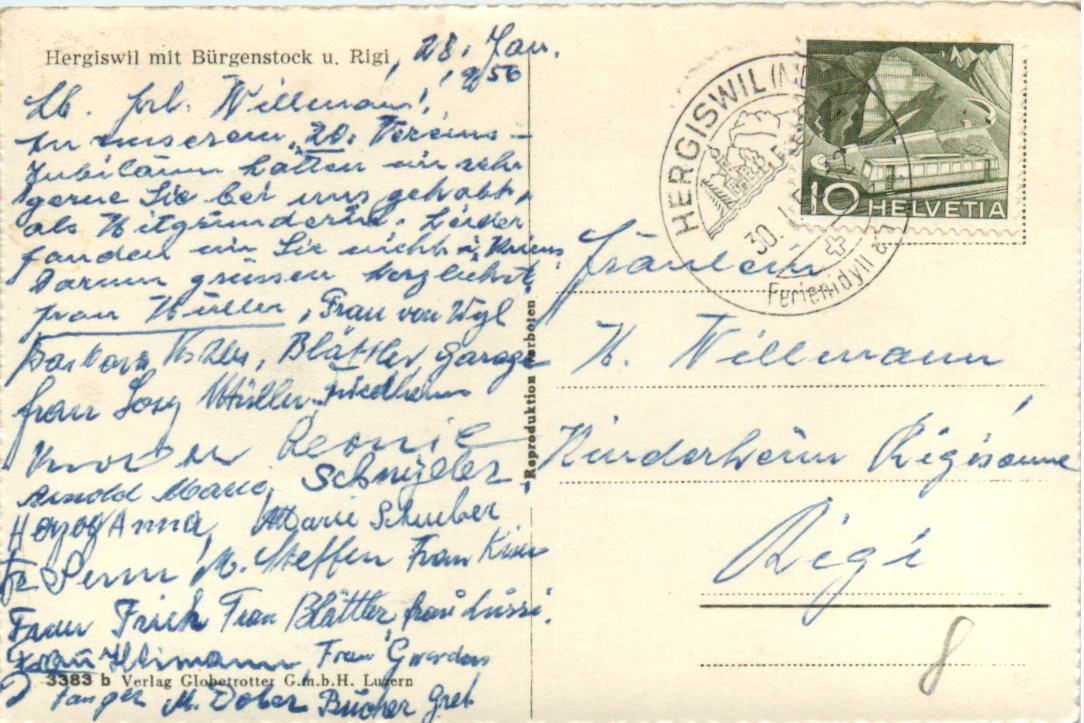 Hergiswil mit Bürgenstock u. Rigi
28. Jan.
1956
Lb. Frl. Willmann!
Zu unserem 20. Vereins-
Jubiläum hätten wir sehr
gerne Sie bei uns gehabt,
als Mitgründerin. Leider
fanden wir Sie nicht i. Kriens
Darum grüssen herzlichst
Frau Müller, Frau von Wyl
Barbara, Blättler Garage
Frau Josy Müller Friedheim
Leonie
Arnold Marie, Schnyder
Herzog Anna, Marie Schuber
M. Steffen Frau
Frau Frick Frau Blättler, Frau Lussi.
Frau Frau
3383 b Verlag Globetrotter G.m.b.H. Luzern
M. Dober Bucher Gret
Reproduktion verboten
HERGISWIL
30. I.
Ferienidyll
10 HELVETIA
Fräulein
M. Willmann
Kinderheim Rigisonne
Rigi
8